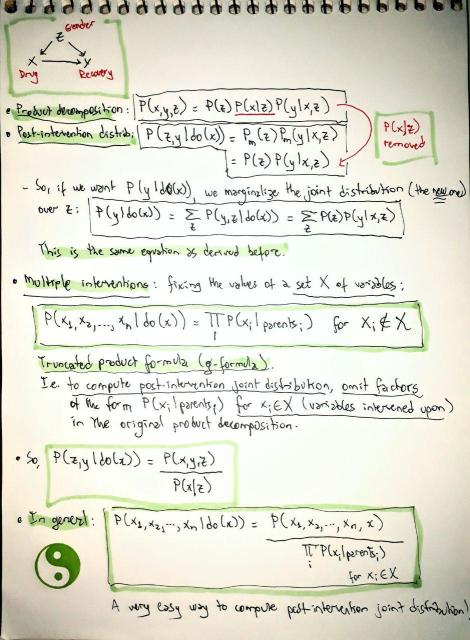 Gender
Z
X → Y
Drug Recovery
• Product decomposition: P(x,y,z) = P(z) P(x|z) P(y|x,z)
• Post-intervention distrib: P(z,y|do(x)) = Pₘ(z) Pₘ(y|x,z)
= P(z) P(y|x,z)
P(x|z)
removed
- So, if we want P(y|do(x)), we marginalize the joint distribution (the new one)
over z: P(y|do(x)) = Σ_z P(y,z|do(x)) = Σ_z P(z)P(y|x,z)
This is the same equation as derived before.
• Multiple interventions: fixing the values of a set X of variables:
P(x₁,x₂,...,xₙ|do(x)) = ∏_i P(xᵢ|parentsᵢ) for Xᵢ ∉ X
Truncated product formula (g-formula).
I.e. to compute post-intervention joint distribution, omit factors
of the form P(xᵢ|parentsᵢ) for xᵢ∈X (variables intervened upon)
in the original product decomposition.
• So, P(z,y|do(x)) = P(x,y,z)
P(x|z)
• In general: P(x₁,x₂,...,xₙ|do(x)) = P(x₁,x₂,...,xₙ,x)
∏_i P(xᵢ|parentsᵢ)
for xᵢ∈X
A very easy way to compute post-intervention joint distribution!